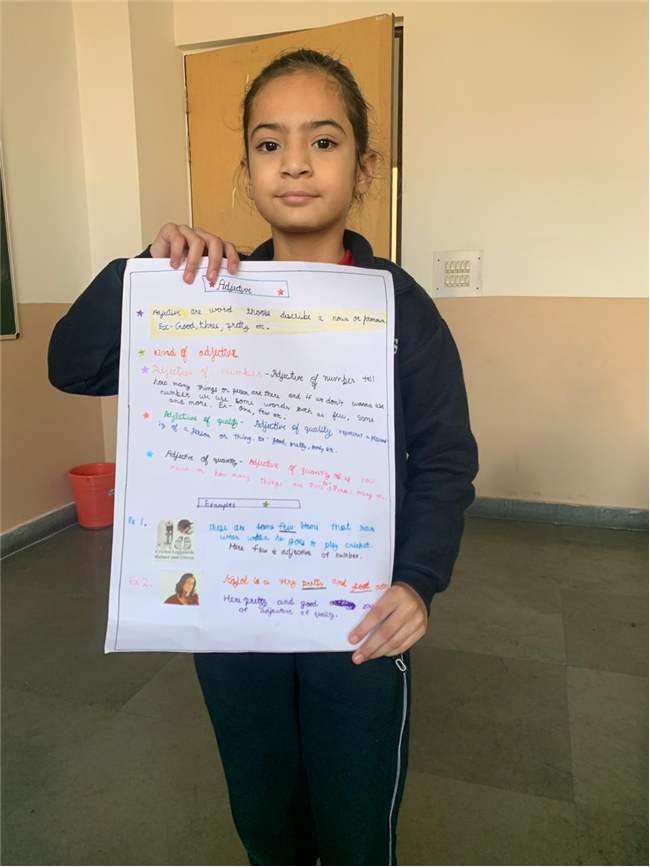 Adjective
Adjective are word thoose describe a noun or pronoun
Ex- Good, three, pretty etc.
Kind of adjective
Adjective of number - Adjective of number tell
how many things or person are there and if we don't wanna use
number we use some words such as few, some
and more. Ex - one, few etc.
Adjective of quality - Adjective of quality
ty of a person or thing. Ex - good, pretty, etc.
Adjective of quantity - Adjective of quantity how
much or how many things are there
Examples
Ex 1.
These are some few items that
wear when he goes to play cricket.
Here few is adjective of number.
Cricket Leggaurds
Helmet and Gloves
Ex 2.
Kajol is a very pretty and good
Here pretty and good
of adjective of quality.